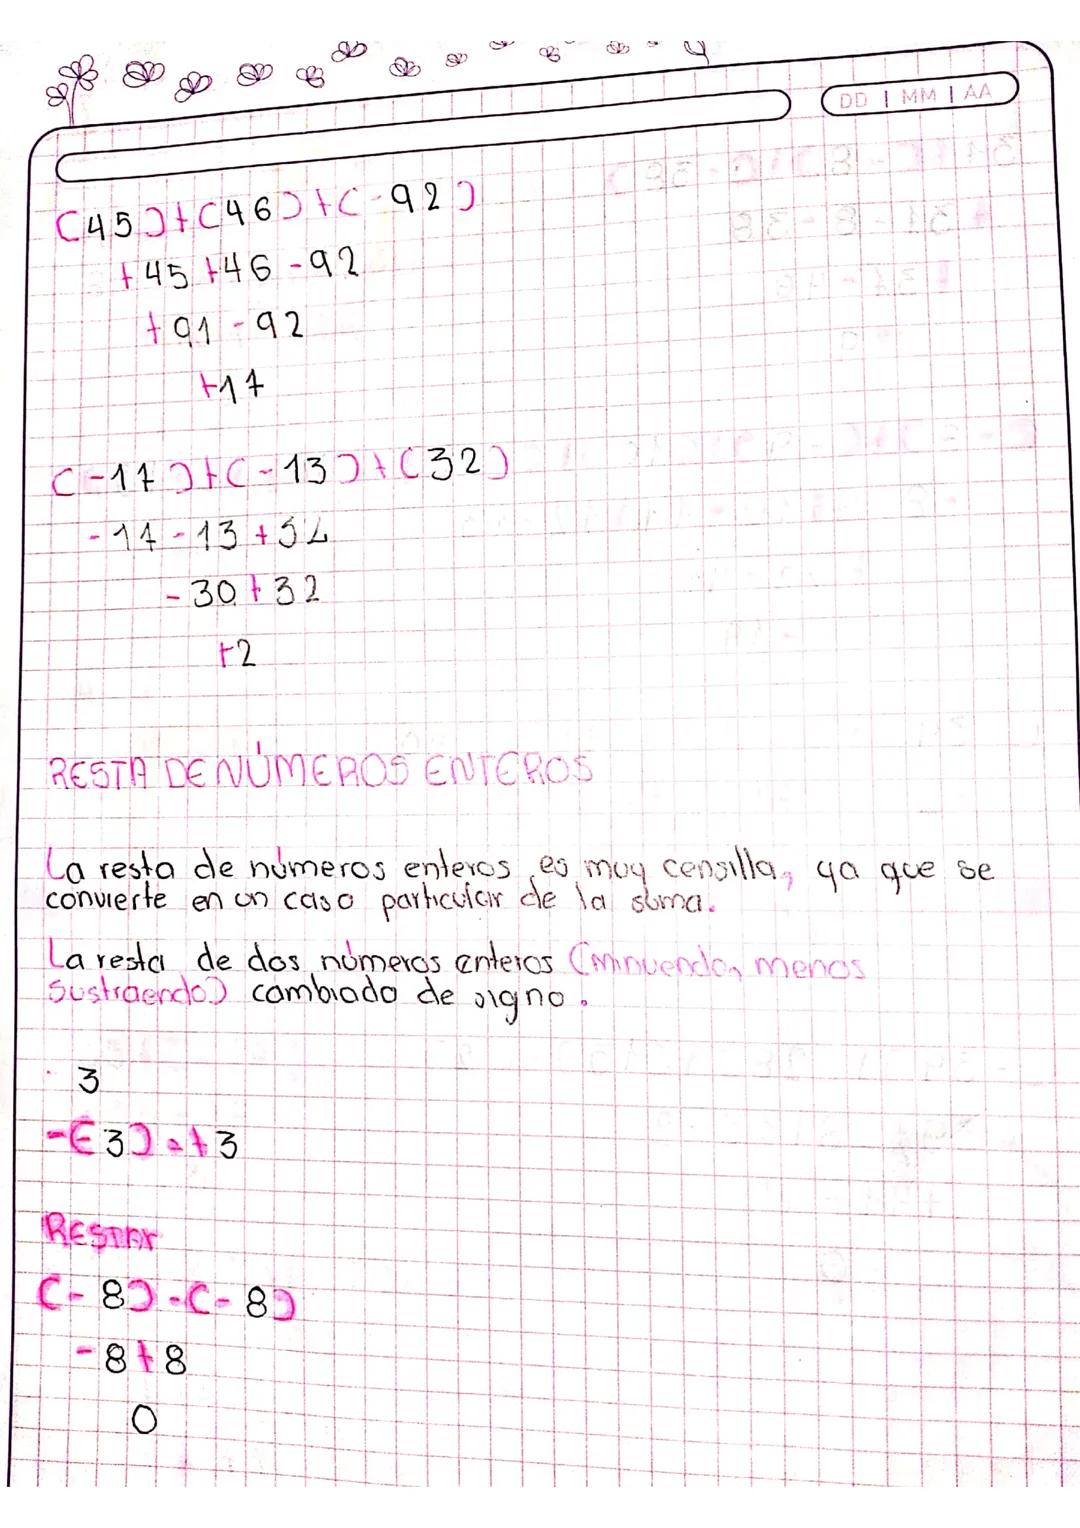 DD | MM | AA
(45)+(46)+(-92)
+45+46-92
+91-92
+17
(-17)+(-13)+(32)
-17-13+32
-30+32
+2
RESTA DE NÚMEROS ENTEROS
La resta de números enteros es muy censilla, ya que se
convierte en un caso particular de la suma.
La resta de dos números enteros (minuendo, menos
sustraendo) cambiado de signo.
3
-(-3)=+3
RESTAR
(-8)-(-8)
-8+8
0